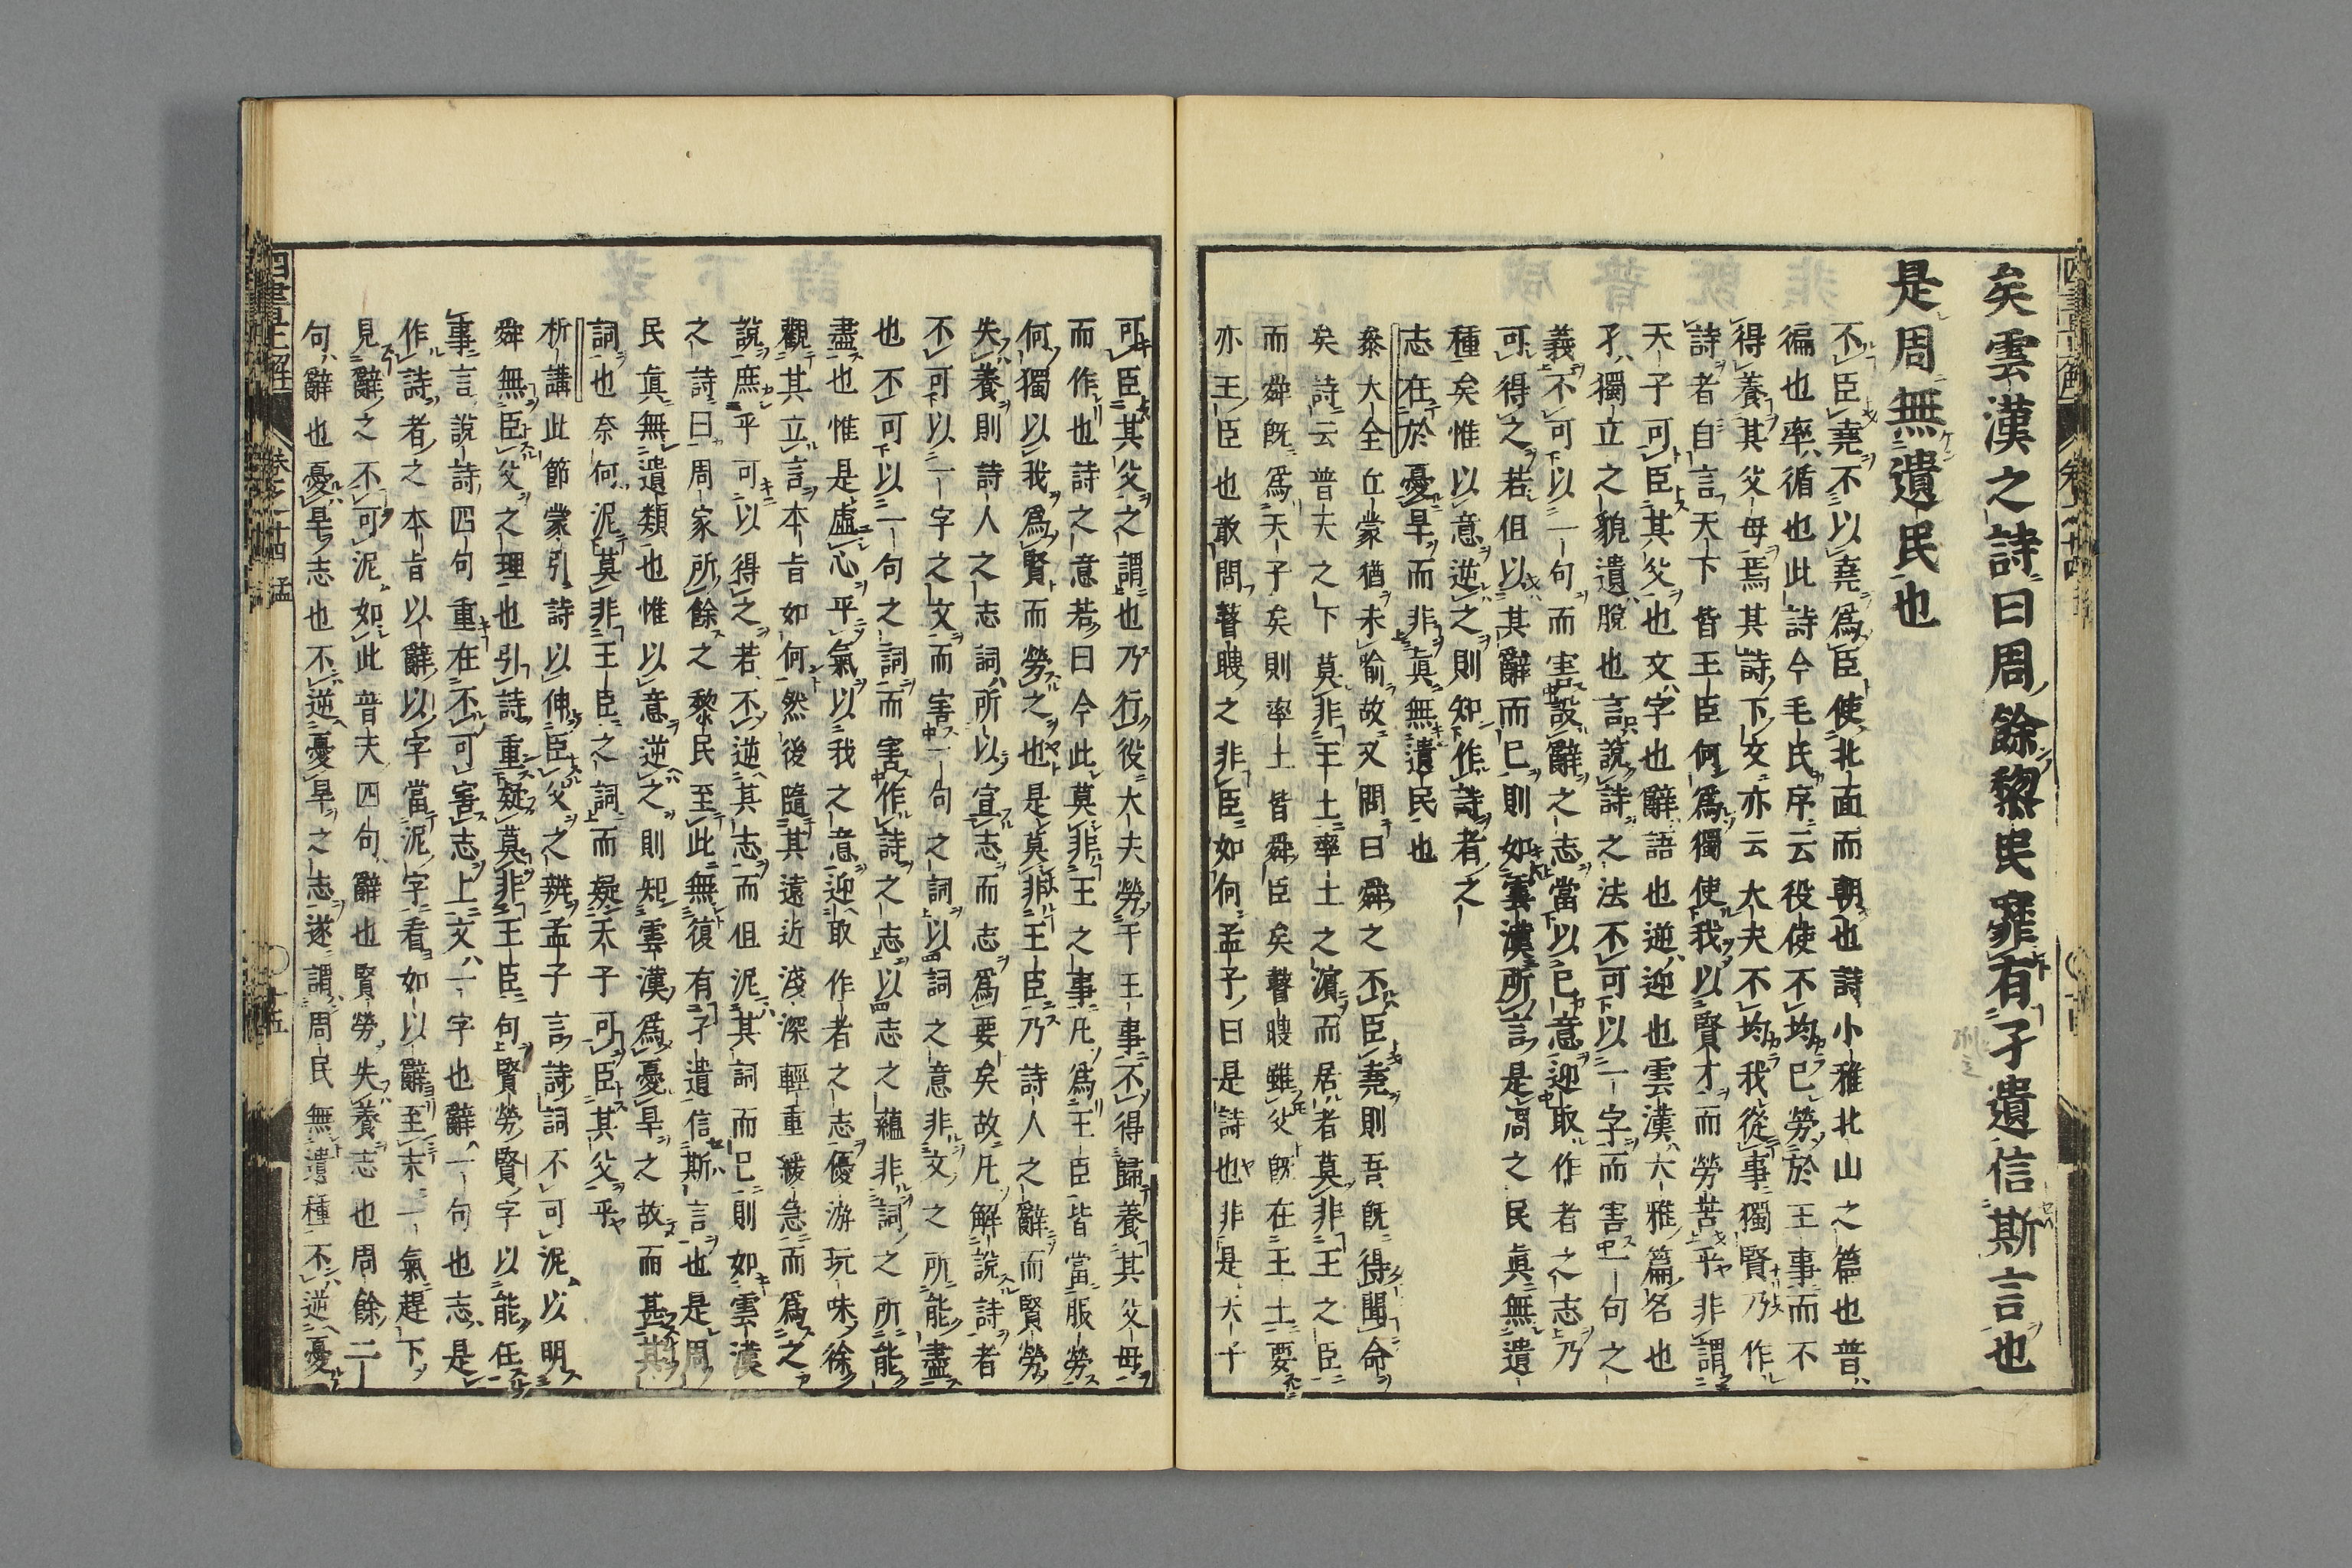 矣雲漢之詩曰周餘黎民靡有孑遺信斯言也
是周無遺民也
不臣堯不以堯爲臣使北面而朝也詩小雅北山之篇也普
徧也率循也此詩今毛氏序云役使不均已勞於王事而不
得養其父母焉其詩下文亦云大夫不均我從事獨賢乃作
詩者自言天下皆王臣何爲獨使我以賢才而勞苦乎非謂
天子可臣其父也文字也辭語也逆迎也雲漢大雅篇名也
孑獨立之貌遺脫也言說詩之法不可以一字而害一句之
義不可以一句而害設辭之志當以已意迎取作者之志乃
可得之若但以其辭而已則如雲漢所言是周之民眞無遺
種矣惟以意逆之則知作詩者之
志在於憂旱而非眞無遺民也
叅大全丘蒙猶未喻故又問曰舜之不臣堯則吾旣得聞命
矣詩云普天之下莫非王土率土之濱而居者莫非王之臣
而舜旣爲天子矣則率土皆舜臣矣瞽瞍雖父旣在王土要
亦王臣也敢問瞽瞍之非臣如何孟子曰是詩也非是天子
可臣其父之謂也乃行役大夫勞于王事不得歸養其父母
而作也詩之意若曰今此莫非王之事凡爲王臣皆當服勞
何獨以我爲賢而勞之也是莫非王臣乃詩人之辭而賢勞
失養則詩人之志詞所以宣志而志爲要矣故凡解說詩者
不可以一字之文而害一句之詞以詞之意非文之所能盡
也不可以一句之詞而害作詩之志以志之蘊非詞之所能
盡也惟是虛心平氣以我之意迎取作者之志優游玩味徐
觀其立言本旨如何然後隨其遠近淺深輕重緩急而爲之
說庶乎可以得之若不逆其志而但泥其詞而已則如雲漢
之詩曰周家所餘之黎民至此無復有孑遺信斯言也是周
民眞無遺類也惟以意逆之則知雲漢爲憂旱之故而甚其
詞也奈何泥莫非王臣之詞而疑天子可臣其父乎
析講此節蒙引詩以伸臣父之辨孟子言詩詞不可泥以明
舜無臣父之理也引詩重疑莫非王臣句賢勞賢字以能任
事言說詩四句重在不可害志上文一字也辭一句也志是
作詩者之本旨以辭以字當泥字看如以辭至末一氣趕下
見辭之不可泥如此普天四句辭也賢勞失養志也周餘二
句辭也憂旱志也不逆憂旱之志遂謂周民無遺種不逆憂